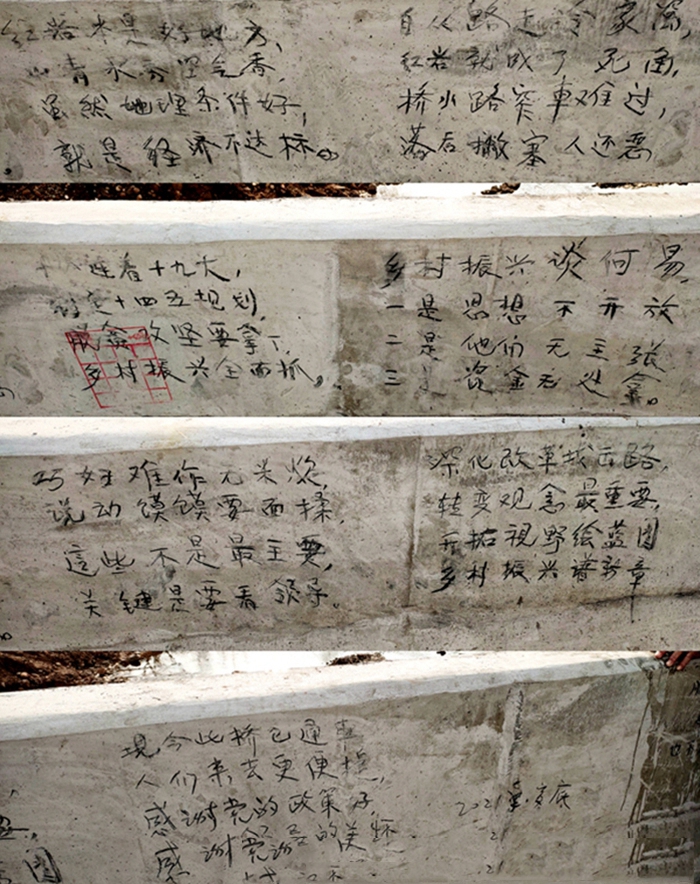 红岩本是好地方,
山青水秀空气香,
虽然地理条件好,
就是经济不达标。
自从路走冷家湾,
红岩就成了死角,
桥水路窄車难过,
落后撇塞人还恶
连着十九大,
十四五规划,
攻坚要拿下,
乡村振兴全面抓。
乡村振兴谈何易,
一是思想不开放
二是他们无主张
三 资金无处拿。
巧妇难作无米炊,
说动馍馍要面揉,
這些不是最主要,
关键是要看领导。
深化改革找出路,
转变观念最重要,
开拓视野绘蓝图
乡村振兴谱新章
現今此桥已通車
人们来去更便捷,
感谢党的政策好,
感谢 的关怀
2021 底